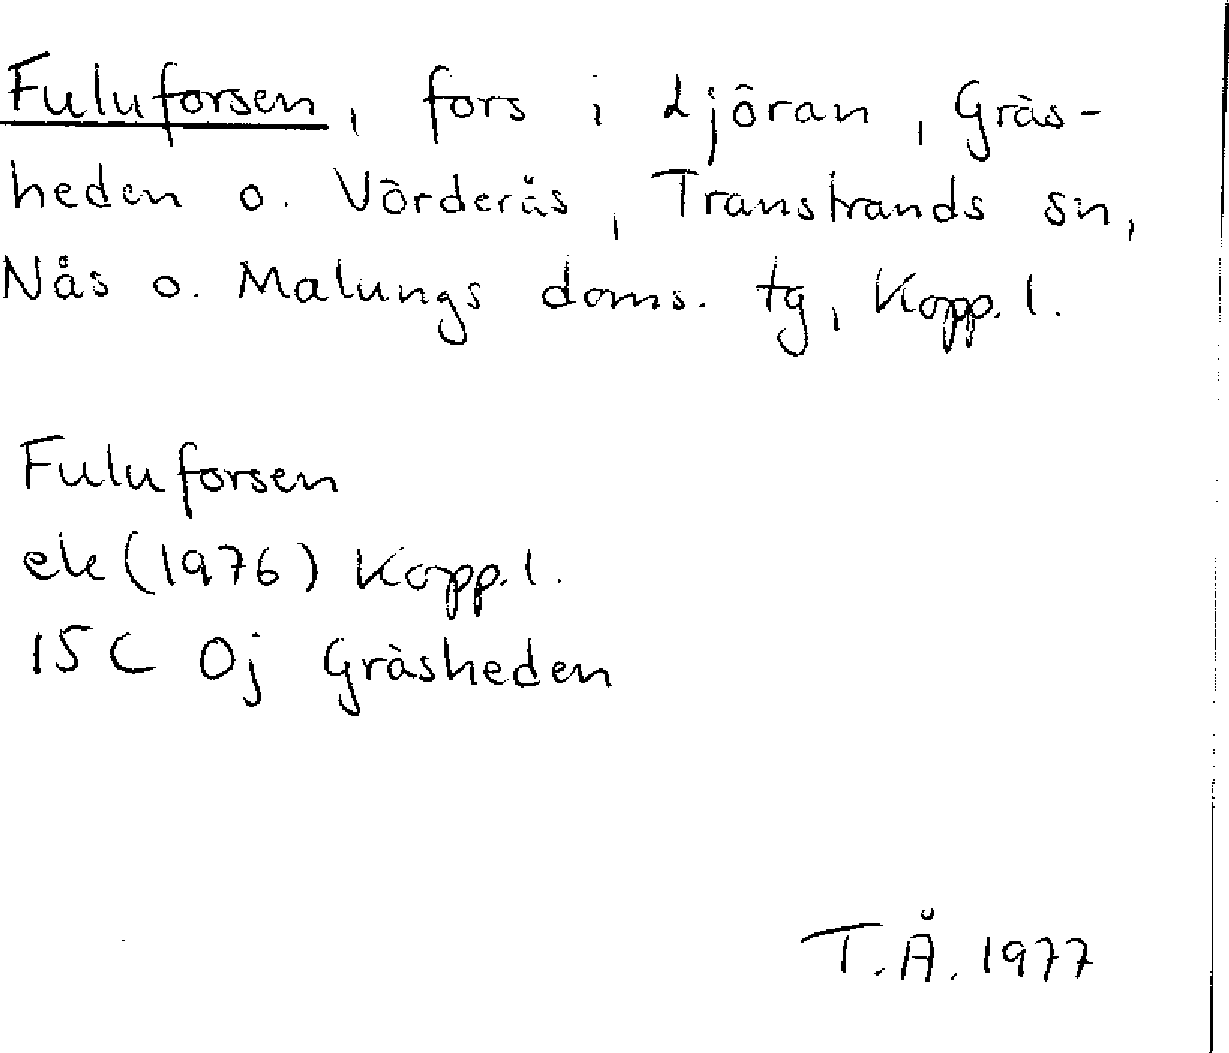 Fuluforsen, fors i Ljöran, Gräs-
heden o. Vörderås, Transtrands sn,
Nås o. Malungs doms. tg, Kopp. l.
Fuluforsen
ek (1976) Kopp. l.
15C 0j Gräsheden
T.Å. 1977